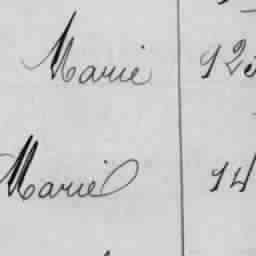 Marie 92
Marie 14